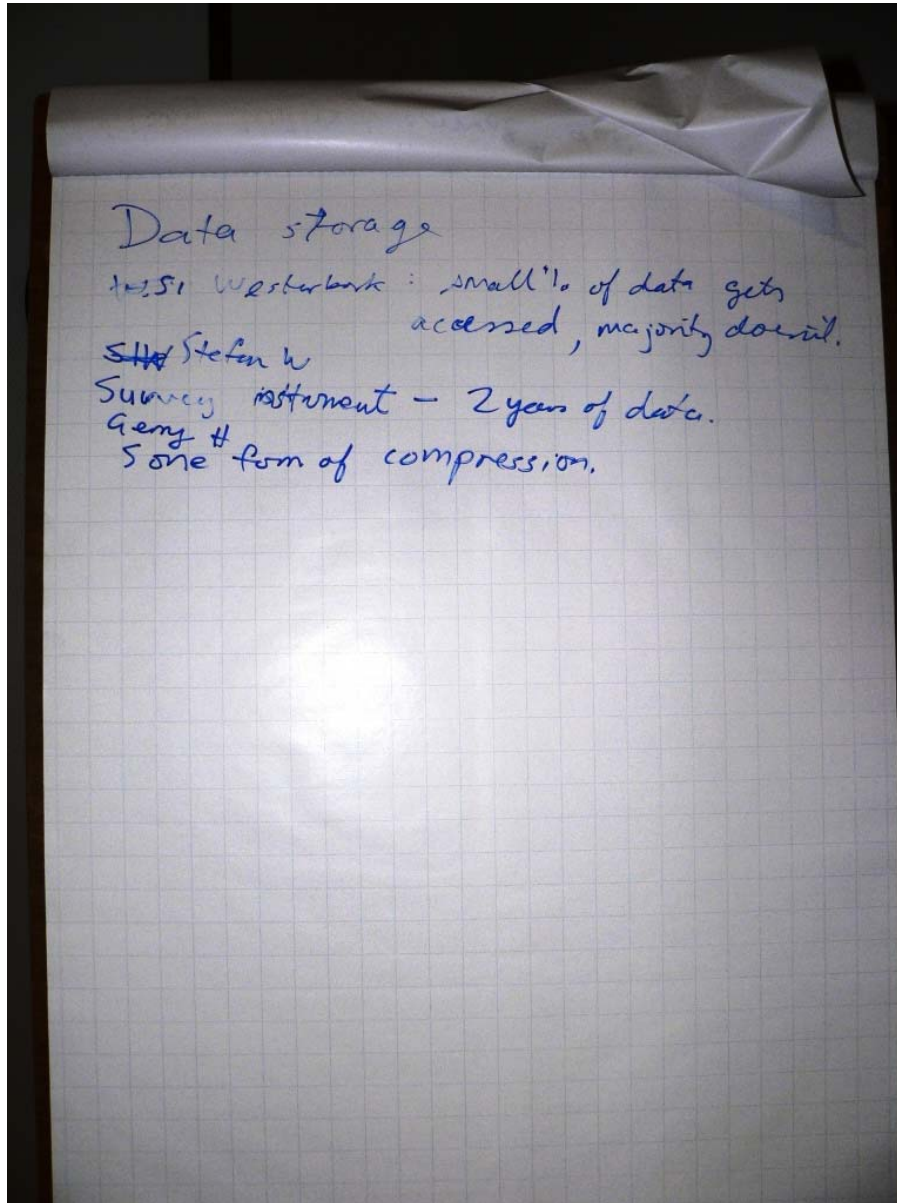 Data storage
Westerbork : small % of data gets
acessed, majority doesn't.
Stefan W
Survey instrument - 2 years of data.
Gerry H
Some form of compression.